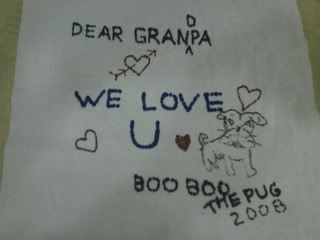 DEAR GRANDPA
WE LOVE
U
BOO BOO
THE PUG
2008